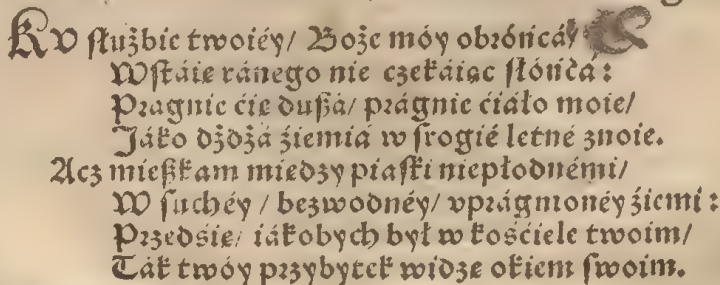 KV ſłużbie twoiéy/ Boże móy obrońcá/
Wſtáię ránego nie czekáiąc ſłóńcá:
Prágnie ćię duſzá/ prágnie ćiáło moie/
Jáko dżdżá źiemiá w ſrogié letné znoie.
Acz mieſzkam miedzy piaſki niepłodnémi/
W ſuchéy / bezwodnéy/ vprágnionéy źiemi:
Przedśię/ iákobych był w kośćiele twoim/
Ták twóy przybytek widzę okiem ſwoim.